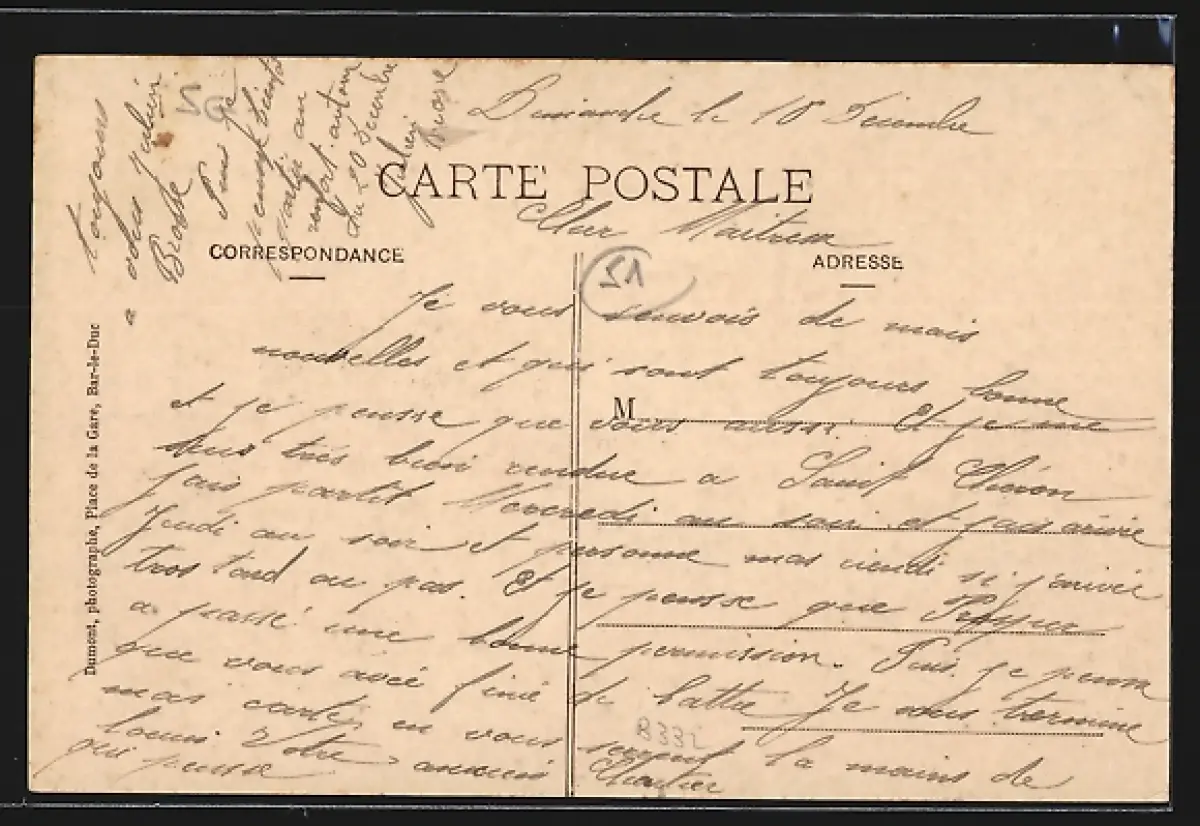 Dimanche le 10 Décembre
CARTE POSTALE
Cher Maitresse
CORRESPONDANCE
ADRESSE
51
Je vous envois de mais
nouvelles et qui sont toujours bonne
M
et je pensse que vous aussi. Et je me
suis très bien rendue a Saint
fais partit Mercredi au soir et fais arivée
Jeudi au soir et personne mas si j'arivée
tros tard ou pas. Et je pensse que
a passé une bonne permission. Puis je pensse
que vous avée finie de battre Je vous termine
mas carte en vous serrent la mains de
louin Votre
qui pensse
toujours
a vous julien
Brosse
Puis je
pensse bientot
partir au
renfort autour
du 20 Décembre
julien
Brosse
Dumont, photographe, Place de la Gare, Bar-le-Duc
8332